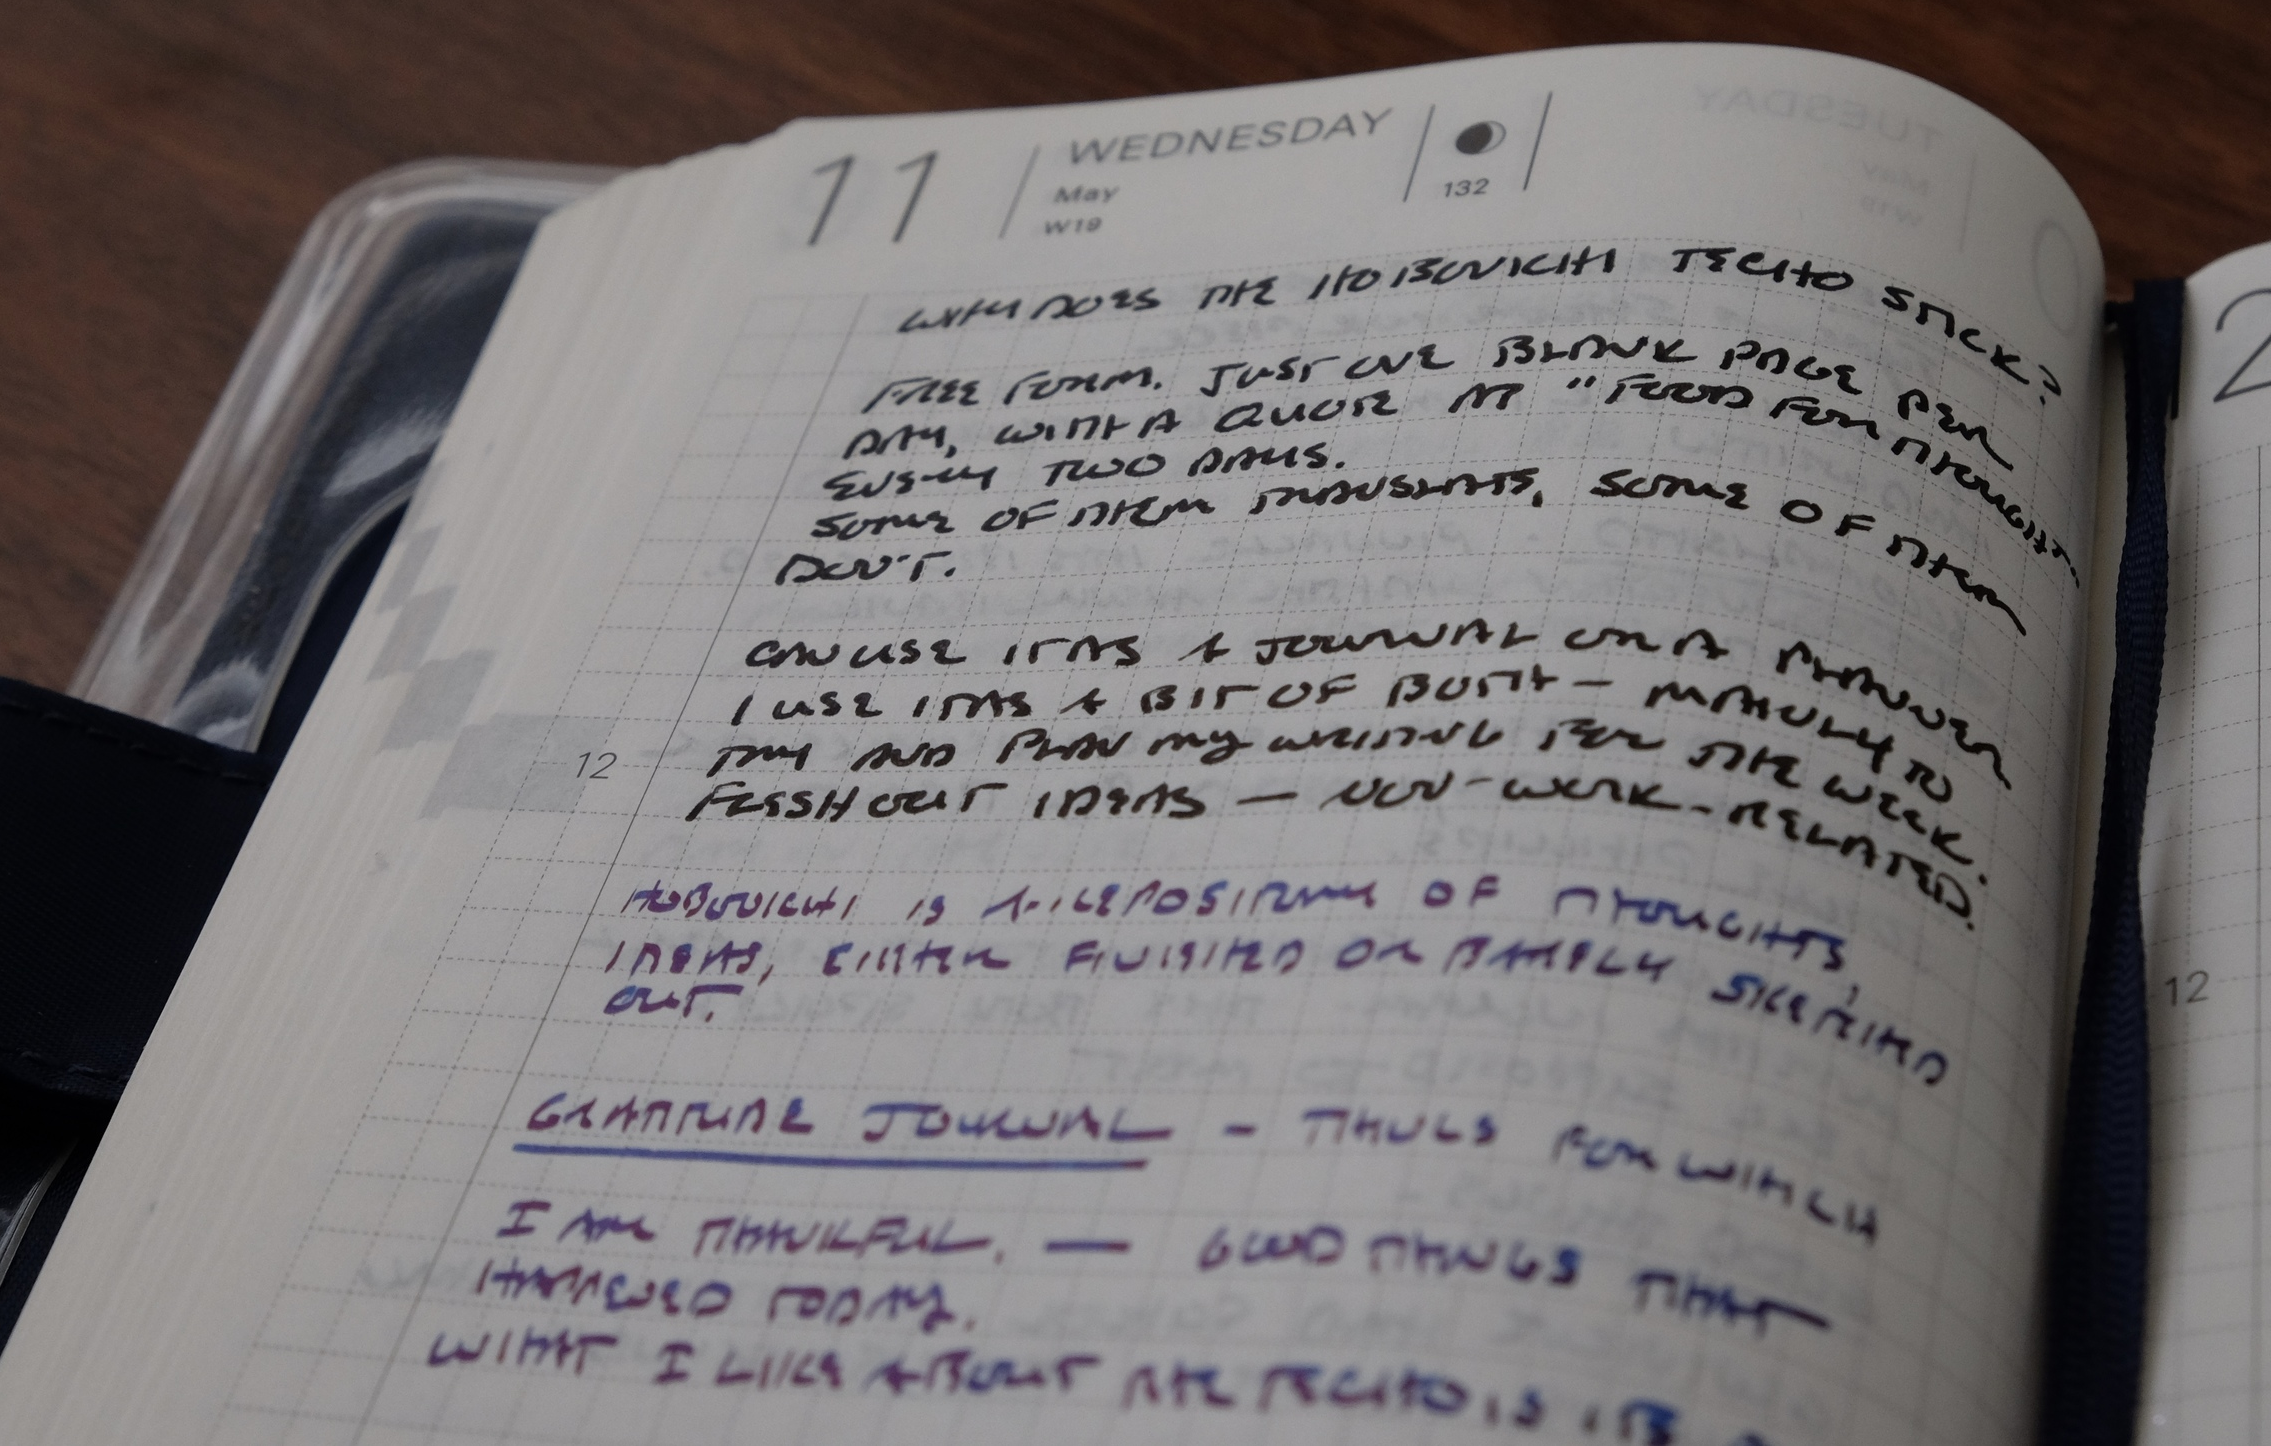 11
WEDNESDAY
May
W19
132
TUESDAY
May
W19
WHY DOES THE HOBONICHI TECHO STICK?
FREE FORM. JUST ONE BLANK PAGE PER
DAY, WITH A QUOTE AT "FOOD FOR THOUGHT"
EVERY TWO DAYS.
SOME OF THEM TRANSLATE, SOME OF THEM
DON'T.
CAN USE IT AS A JOURNAL OR A PLANNER
I USE IT AS A BIT OF BOTH — MAINLY TO
TRY AND PLAN MY WRITING FOR THE WEEK.
12
FLESH OUT IDEAS — NON-WORK-RELATED.
HOBONICHI IS A REPOSITORY OF THOUGHTS,
IDEAS, EITHER FINISHED OR BARELY SKETCHED
OUT.
GRATITUDE JOURNAL - THINGS FOR WHICH
I AM THANKFUL. — GOOD THINGS THAT
HAPPENED TODAY.
WHAT I LIKE ABOUT THE TECHO IS ITS
2
12